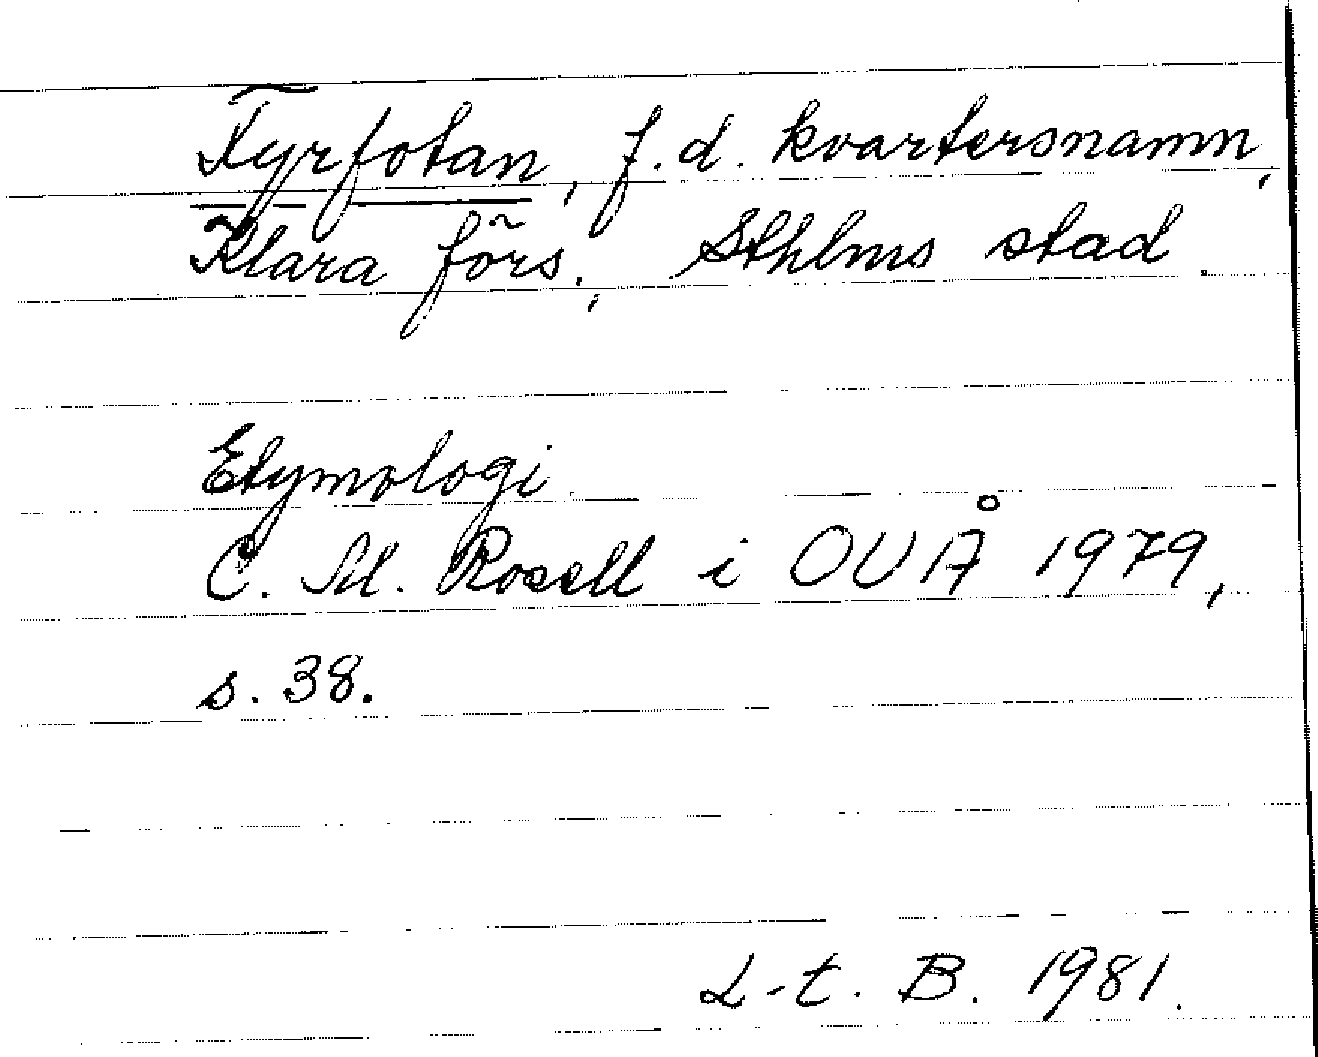 Fyrfotan, f.d. kvartersnamn,
Klara förs., Sthlms stad.
Etymologi.
C. M. Rosell i OUÅ 1979,
s. 38.
L-t. B. 1981.